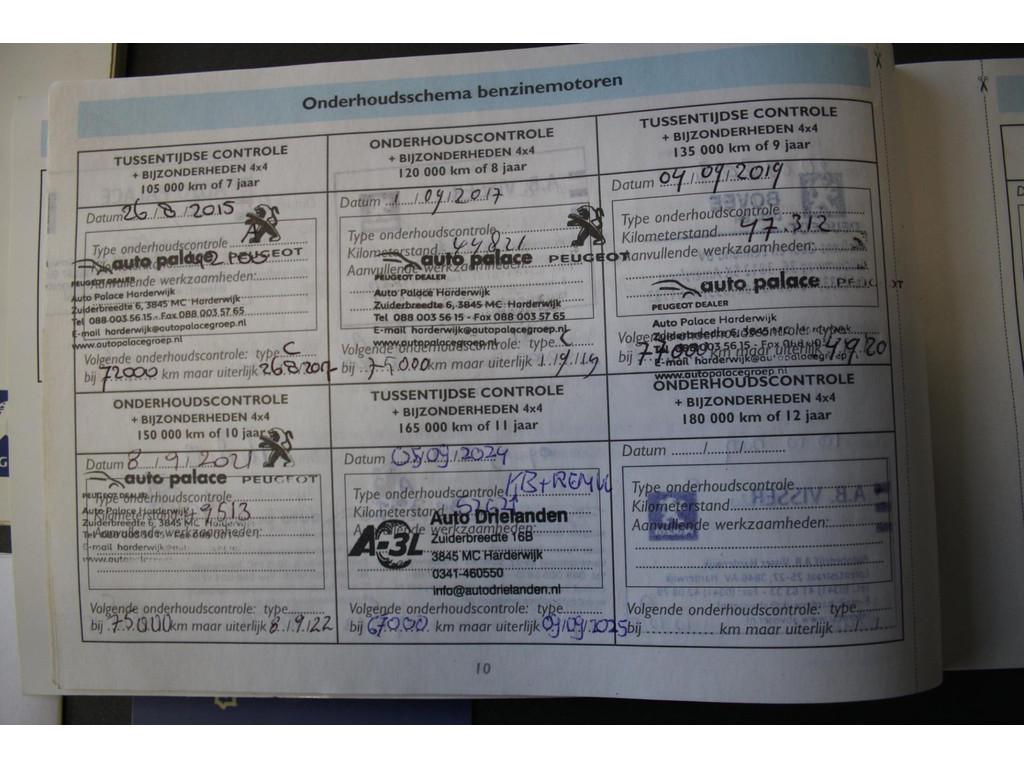 Onderhoudsschema benzinemotoren
TUSSENTIJDSE CONTROLE
+ BIJZONDERHEDEN 4x4
105 000 km of 7 jaar
Datum 26/8/2015
Type onderhoudscontrole A
Kilometerstand
Aanvullende werkzaamheden:
auto palace PEUGEOT
PEUGEOT DEALER
Auto Palace Harderwijk
Zuiderbreedte 6, 3845 MC Harderwijk
Tel 088 003 56 15 - Fax 088 003 57 65
E-mail harderwijk@autopalacegroep.nl
www.autopalacegroep.nl
Volgende onderhoudscontrole: type C
bij 72000 km maar uiterlijk 26.8.
ONDERHOUDSCONTROLE
+ BIJZONDERHEDEN 4x4
120 000 km of 8 jaar
Datum 1/09/2017
Type onderhoudscontrole
Kilometerstand 44821
Aanvullende werkzaamheden:
auto palace PEUGEOT
PEUGEOT DEALER
Auto Palace Harderwijk
Zuiderbreedte 6, 3845 MC Harderwijk
Tel 088 003 56 15 - Fax 088 003 57 65
E-mail harderwijk@autopalacegroep.nl
www.autopalacegroep.nl
Volgende onderhoudscontrole: type C
bij km maar uiterlijk 1/9/19
TUSSENTIJDSE CONTROLE
+ BIJZONDERHEDEN 4x4
135 000 km of 9 jaar
Datum 04/09/2019
Type onderhoudscontrole
Kilometerstand 47.312
Aanvullende werkzaamheden:
auto palace
PEUGEOT DEALER
Auto Palace Harderwijk
Zuiderbreedte 6, 3845 MC Harderwijk
E-mail harderwijk@autopalacegroep.nl
www.autopalacegroep.nl
Volgende onderhoudscontrole: type
bij 77000 km maar uiterlijk 4/9/20
ONDERHOUDSCONTROLE
+ BIJZONDERHEDEN 4x4
150 000 km of 10 jaar
Datum 8/9/2021
auto palace PEUGEOT
Type onderhoudscontrole
Kilometerstand
Aanvullende werkzaamheden:
Volgende onderhoudscontrole: type
bij 75000 km maar uiterlijk 8/9/22
TUSSENTIJDSE CONTROLE
+ BIJZONDERHEDEN 4x4
165 000 km of 11 jaar
Datum 05/09/2024
Type onderhoudscontrole
Kilometerstand
Aanvullende werkzaamheden:
A-3L
Auto Drielanden
Zuiderbreedte 16B
3845 MC Harderwijk
0341-460550
info@autodrielanden.nl
Volgende onderhoudscontrole: type
bij 67000 km maar uiterlijk 09/09/2025
ONDERHOUDSCONTROLE
+ BIJZONDERHEDEN 4x4
180 000 km of 12 jaar
Datum ....../....../......
Type onderhoudscontrole
Kilometerstand
Aanvullende werkzaamheden:
Volgende onderhoudscontrole: type
bij km maar uiterlijk
10